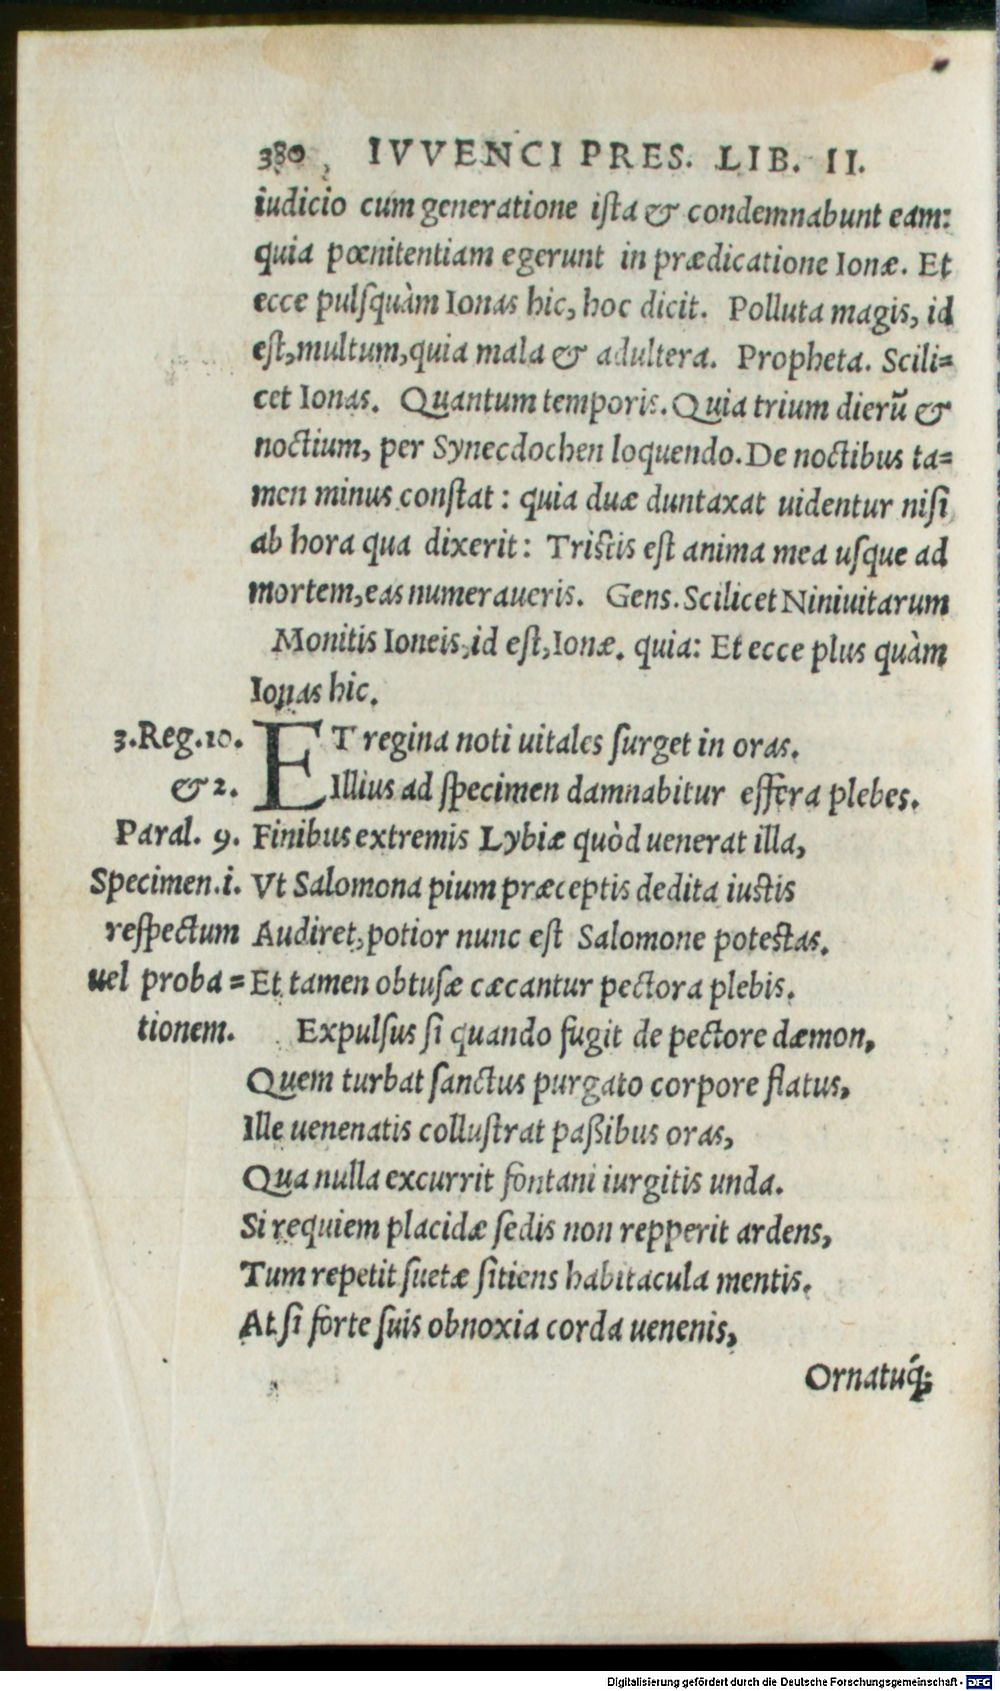 380 IVVENCI PRES. LIB. II.
iudicio cum generatione ista & condemnabunt eam:
quia pœnitentiam egerunt in prædicatione Ionæ. Et
ecce pulsquàm Ionas hic, hoc dicit. Polluta magis, id
est, multum, quia mala & adultera. Propheta. Scili=
cet Ionas. Quantum temporis. Quia trium dierũ &
noctium, per Synecdochen loquendo. De noctibus ta=
men minus constat: quia duæ duntaxat uidentur nisi
ab hora qua dixerit: Tristis est anima mea usque ad
mortem, eas numeraueris. Gens. Scilicet Niniuitarum
Monitis Ioneis, id est, Ionæ. quia: Et ecce plus quàm
Ionas hic.
3. Reg. 10. ET regina noti uitales surget in oras.
& 2. Illius ad specimen damnabitur effera plebes.
Paral. 9. Finibus extremis Lybiæ quòd uenerat illa,
Specimen.i. Vt Salomona pium præceptis dedita iustis
respectum Audiret, potior nunc est Salomone potestas.
uel proba= Et tamen obtusæ cæcantur pectora plebis.
tionem. Expulsus si quando fugit de pectore dæmon,
Quem turbat sanctus purgato corpore flatus,
Ille uenenatis collustrat paßibus oras,
Qua nulla excurrit fontani iurgitis unda.
Si requiem placidæ sedis non repperit ardens,
Tum repetit suetæ sitiens habitacula mentis.
At si forte suis obnoxia corda uenenis,
Ornatuq́;
Digitalisierung gefördert durch die Deutsche Forschungsgemeinschaft - DFG